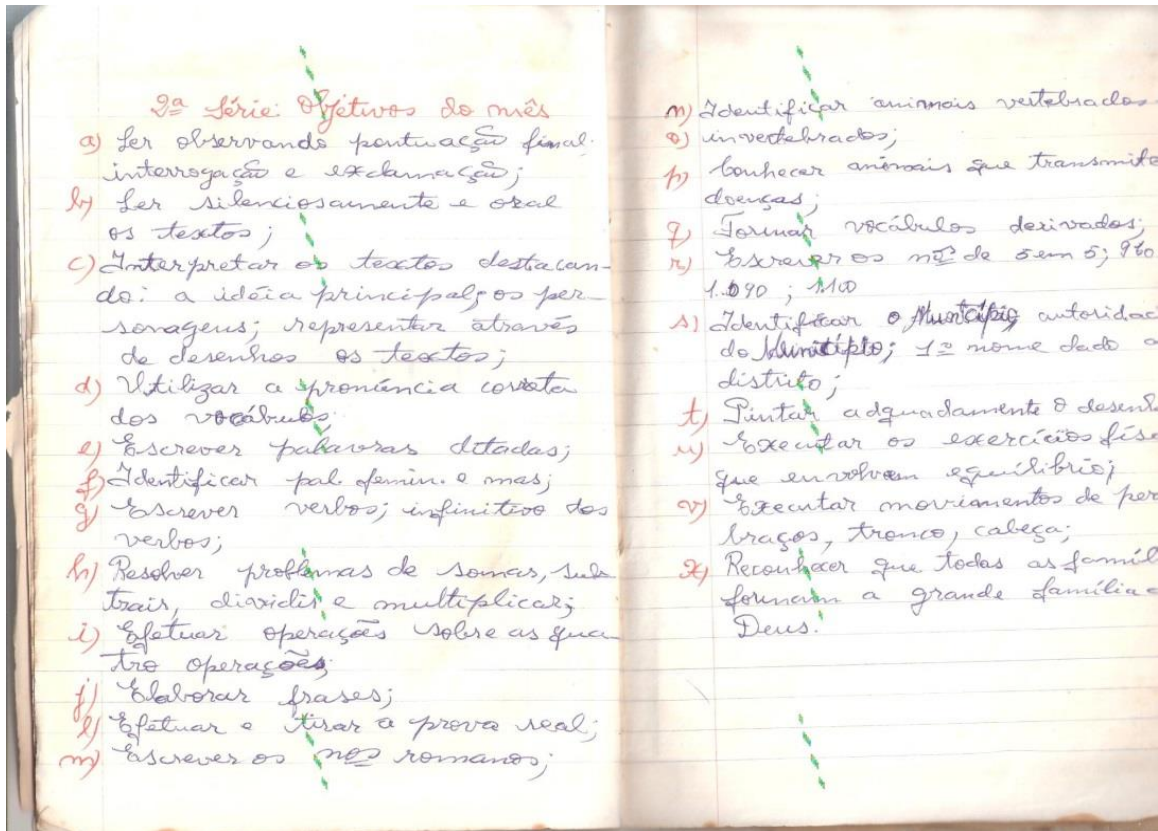 2ª Série: Objetivos do mês
a) Ler observando pontuação final:
interrogação e exclamação;
b) Ler silenciosamente e oral
os textos;
c) Interpretar os textos destacan-
do: a idéia principal; os per-
sonagens; representar através
de desenhos os textos;
d) Utilizar a pronúncia correta
dos vocábulos;
e) Escrever palavras ditadas;
f) Identificar pal. femin. e mas;
g) Escrever verbos; infinitivo dos
verbos;
h) Resolver problemas de somar, sub
trair, dividir e multiplicar;
i) Efetuar operações sobre as qua
tro operações;
j) Elaborar frases;
l) Efetuar e tirar a prova real;
m) Escrever os nos romanos;
n) Identificar animais vertebrados
o) invertebrados;
p) Conhecer animais que transmite
doenças;
q) Formar vocábulos derivados;
r) Escrever os nº de 5 em 5; 960
1.090 ; 1.100
s) Identificar o Município, autoridad
do Município; 1º nome dado a
distrito;
t) Pintar adquadamente o desenh
u) Executar os exercícios físi
que envolvem equilíbrio;
v) Executar moviamentos de per
braços, tronco, cabeça;
x) Reconhecer que todas as famíl
formam a grande família d
Deus.